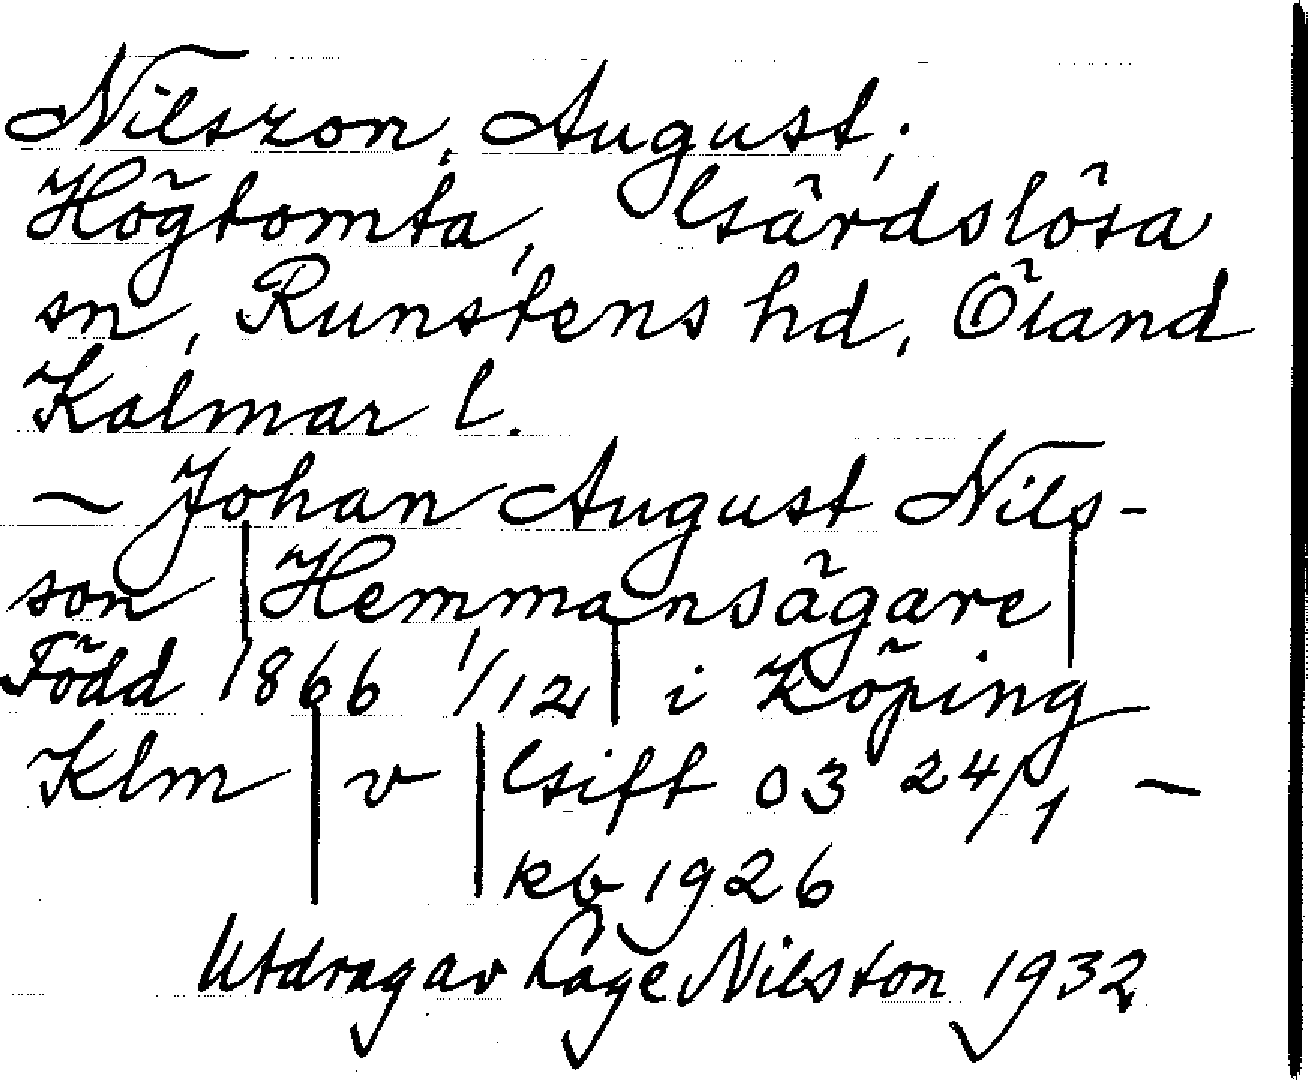 Nilszon, August,
Högtomta, Gärdslösa
sn, Runstens hd, Öland
Kalmar l.
– Johan August Nils-
son | Hemmansägare |
Född 1866 1/12 | i Köping
Klm | v | Gift 03 24/1 –
kb 1926
Utdrag av Låge Nilston 1932